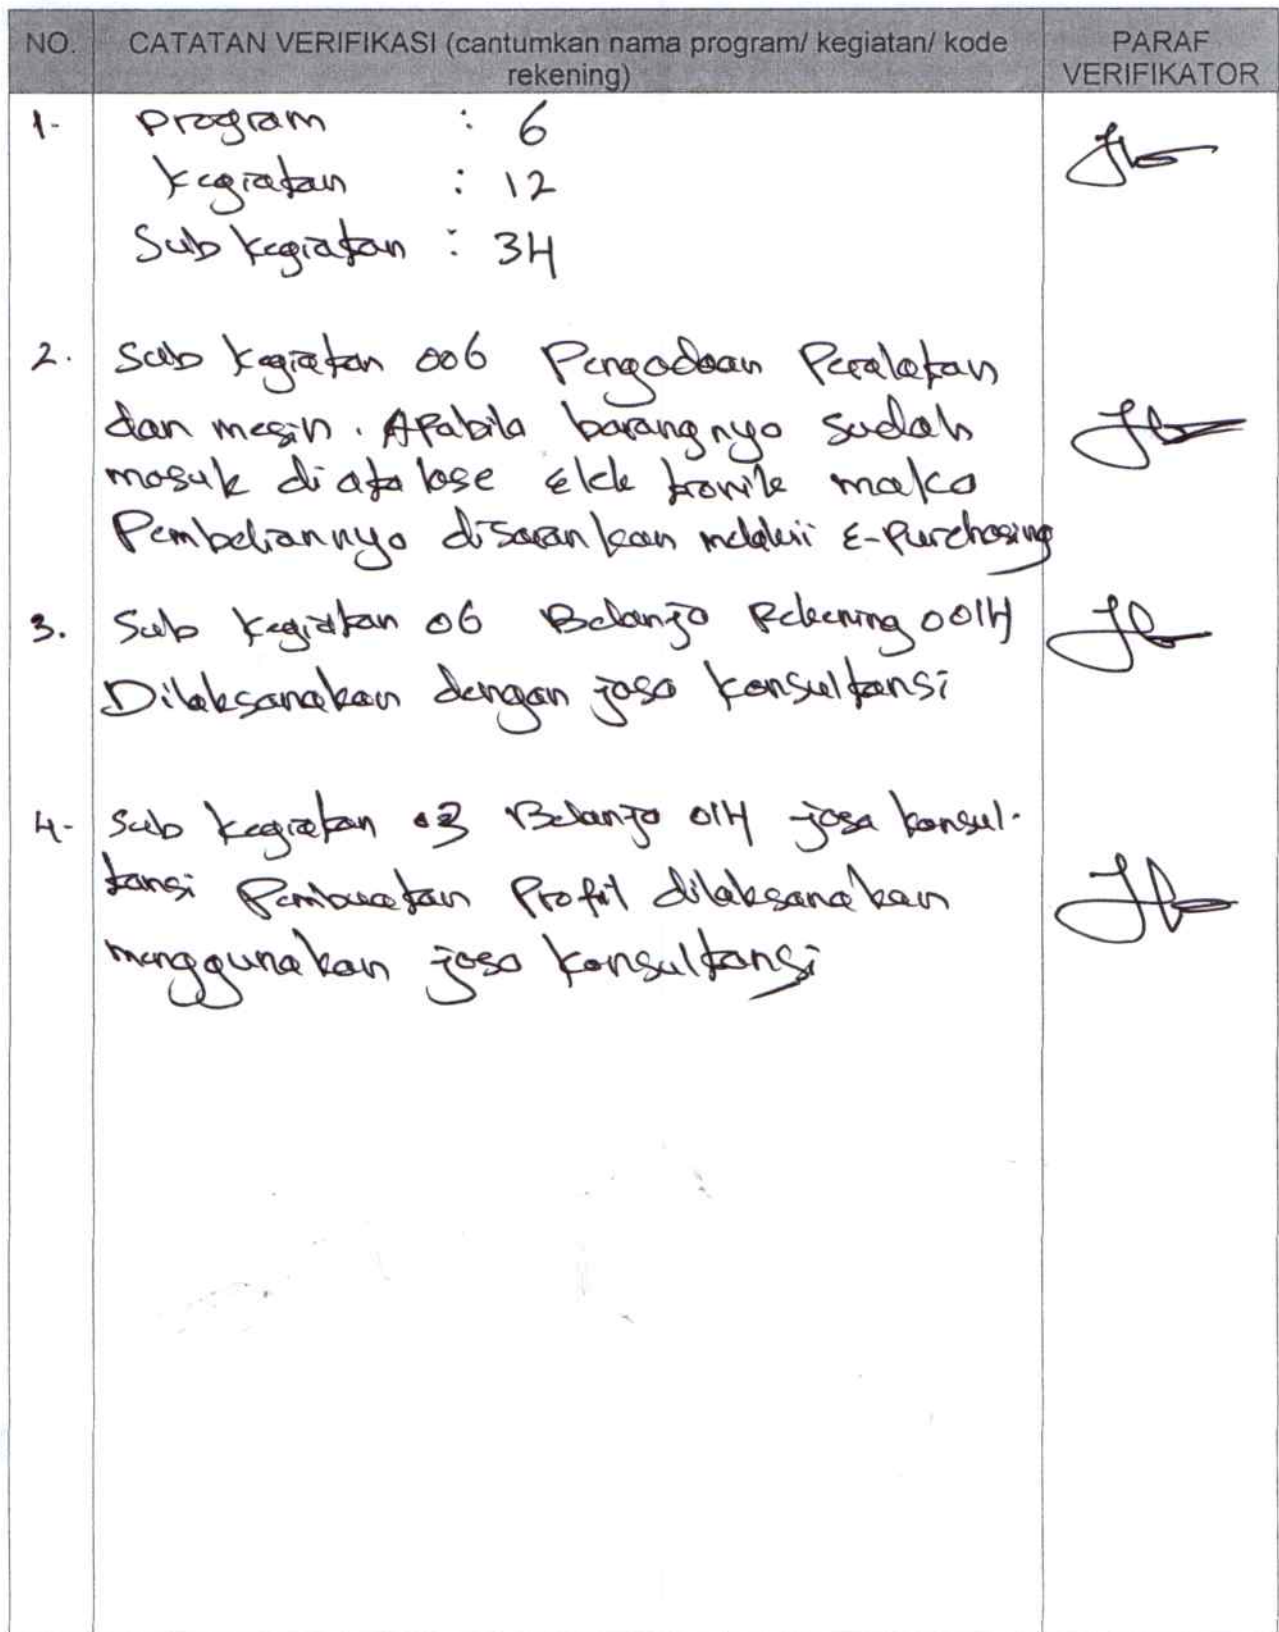 NO. CATATAN VERIFIKASI (cantumkan nama program/ kegiatan/ kode rekening) PARAF VERIFIKATOR
1. Program : 6
Kegiatan : 12
Sub kegiatan : 34
2. Sub kegiatan 006 Pengadaan Peralatan
dan mesin. Apabila barangnya sudah
masuk di atalose elektronik maka
Pembeliannya disarankan melalui E-Purchasing
3. Sub kegiatan 06 Belanja Rekening 0014
Dilaksanakan dengan jasa konsultansi
4. Sub kegiatan 03 Belanja 014 jasa konsul-
tansi Pembuatan Profil dilaksanakan
menggunakan jasa konsultansi